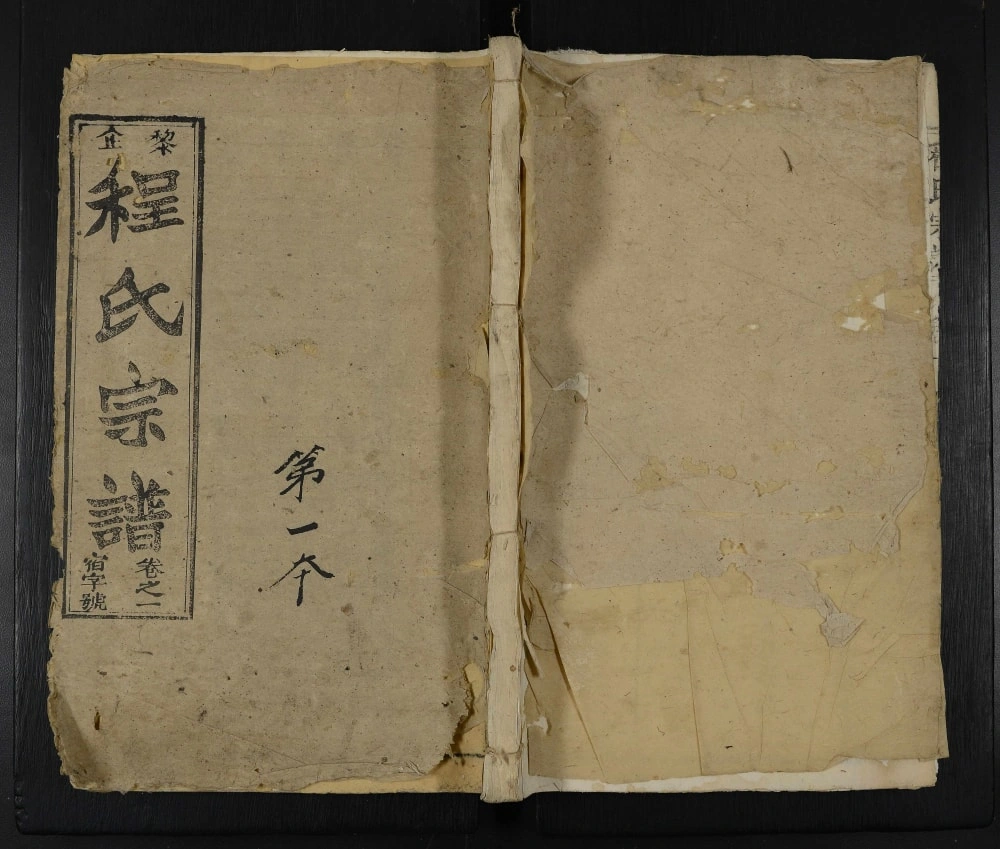 黎企
程氏宗譜
卷之一
宿字號
第一本
氏宗